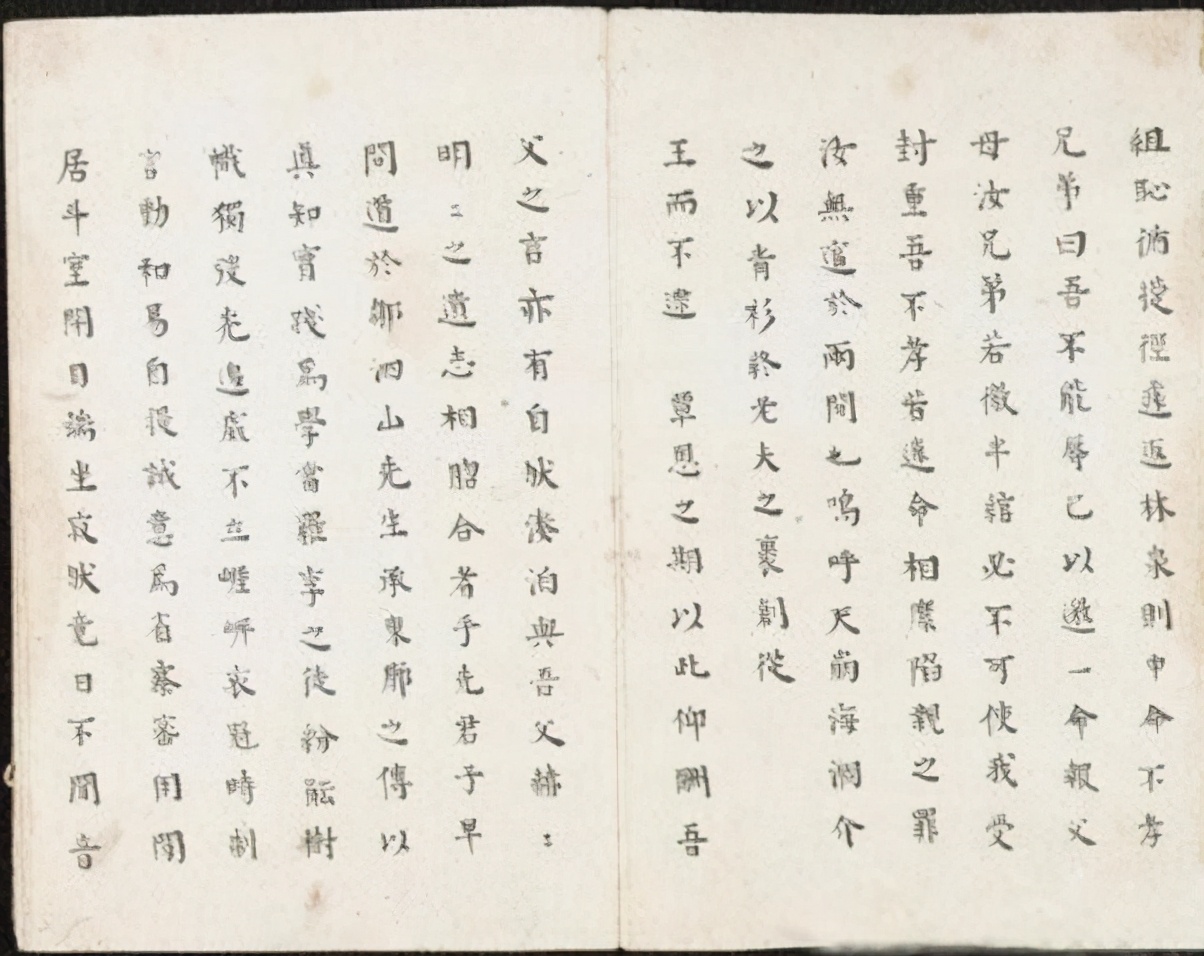 組恥循捷徑遂返林泉則申命不孝
兄弟曰吾不能辱己以邀一命報父
母汝兄弟若徼半綰必不可使我受
封重吾不孝苦違命相縻陷親之罪
汝無逭於兩間也嗚呼天崩海涸介
之以青衫終老夫之裹創從
王而不逮 覃恩之期以此仰酬吾
父之言亦有自狀湊泊與吾父赫〻
明〻之遺志相脗合者乎先君子早
問道於鄒泗山先生承東廓之傳以
真知實踐爲學當羅李之徒紛紜樹
幟獨從先邁處不立崕岸衣冠時制
言動和易自提誠意爲省察密用閒
居斗室閉目端坐寂狀竟日不聞音